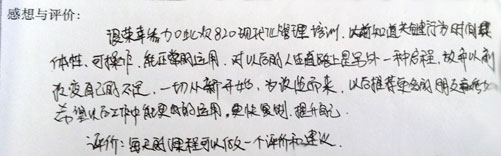 感想与评价:
很荣幸能参加此次820现代化管理培训,以前知道关键行为时间
体性,可操作,能正常的运用,对以后的人生道路上是另外一种启程,
改变自己的不足,一切从新开始,为改进而来,以后推荐更多的朋友
希望以后工作中能更好的运用,更快复制,提升自己.
评价:每天的课程可以做一个评价和建议.